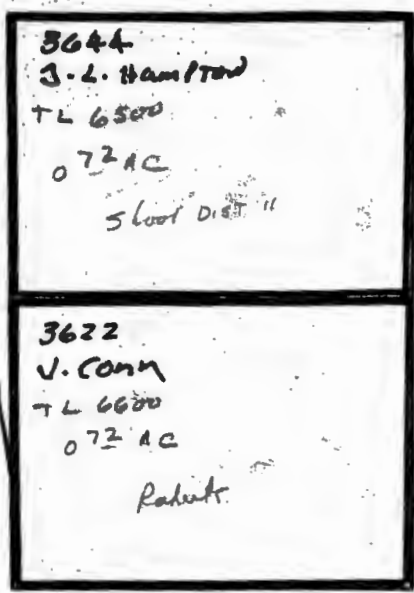 3644
J. L. Hampton
TL 6500
0 72 AC
School DIST 11
3622
V. Conn
TL 6600
0 72 AC